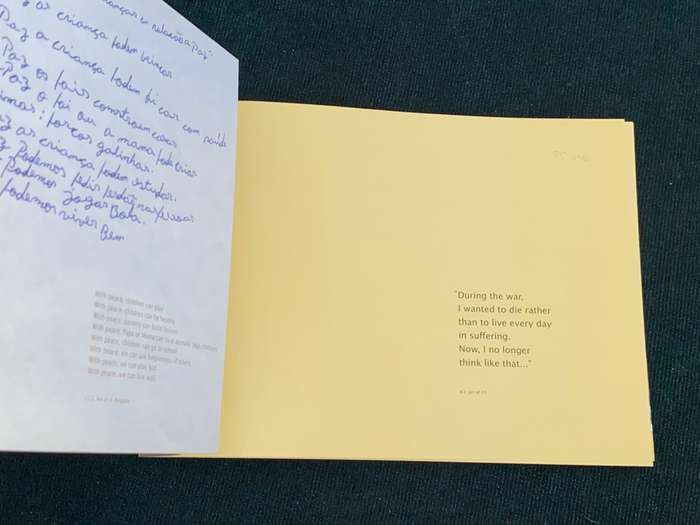 crianças e relação a Paz"
as criança podem brincar
Paz a criança podem ficar com saúde
Paz os pais constroem casas
Paz o pai ou a mama pode criar
porcos galinhas.
as criança podem estudar.
Podemos pedir perdão nas pessoas
Podemos jogar Bola.
podemos viver Bem
With peace, children can play
With peace, children can be healthy
With peace, parents can build houses
With peace, Papa or Mama can raise animals: pigs, chickens
With peace, children can go to school
With peace, we can ask forgiveness of others
With peace, we can play ball
With peace, we can live well.
"During the war,
I wanted to die rather
than to live every day
in suffering.
Now, I no longer
think like that..."